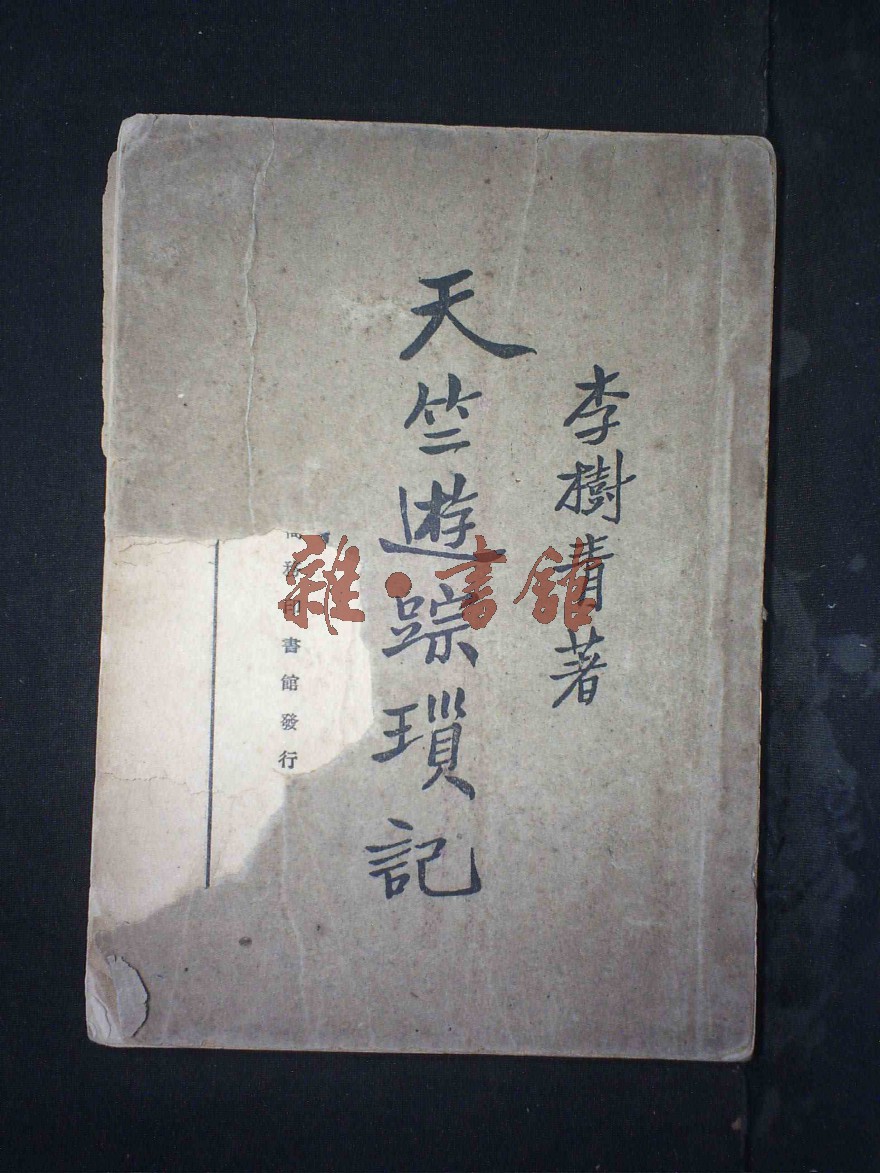 李樹青著
天竺遊踪瑣記
商務印書館發行
雜·書館